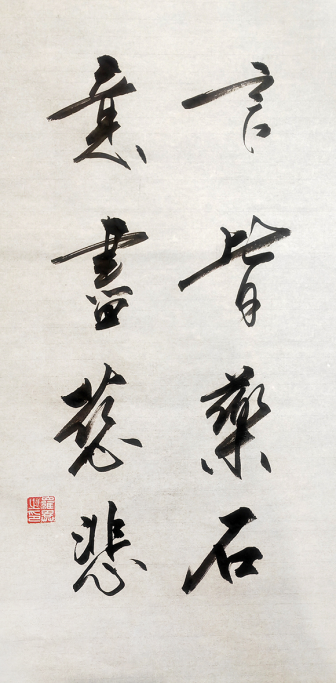 言皆藥石
意盡慈悲